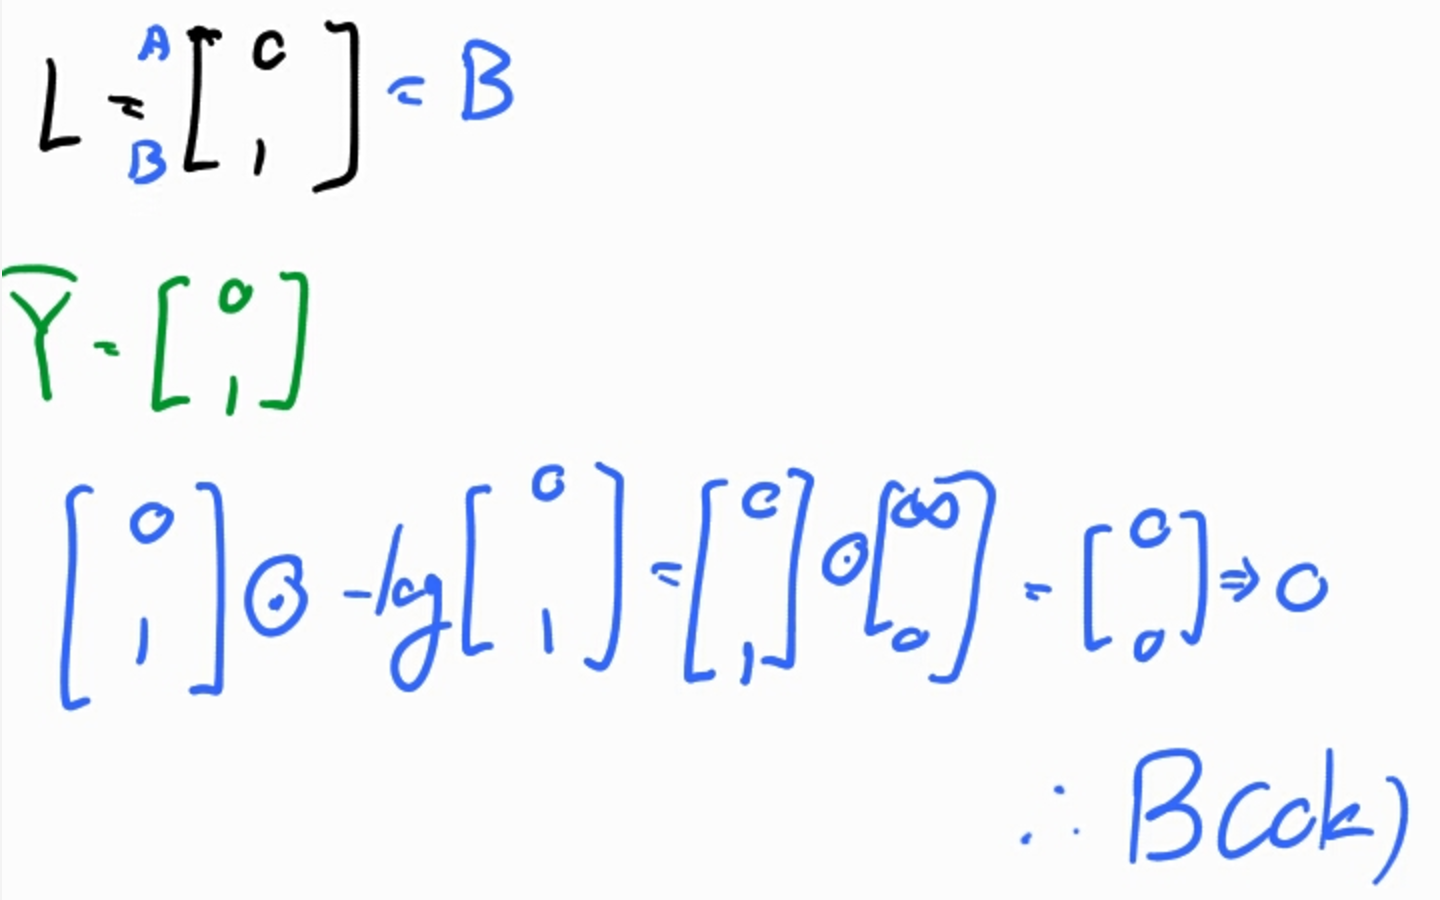 L = A B [ 0 1 ] = B
Ȳ = [ 0 1 ]
[ 0 1 ] ⊙ -log [ 0 1 ] = [ 0 1 ] ⊙ [ ∞ 0 ] = [ 0 0 ] ⇒ 0
∴ B(ok)